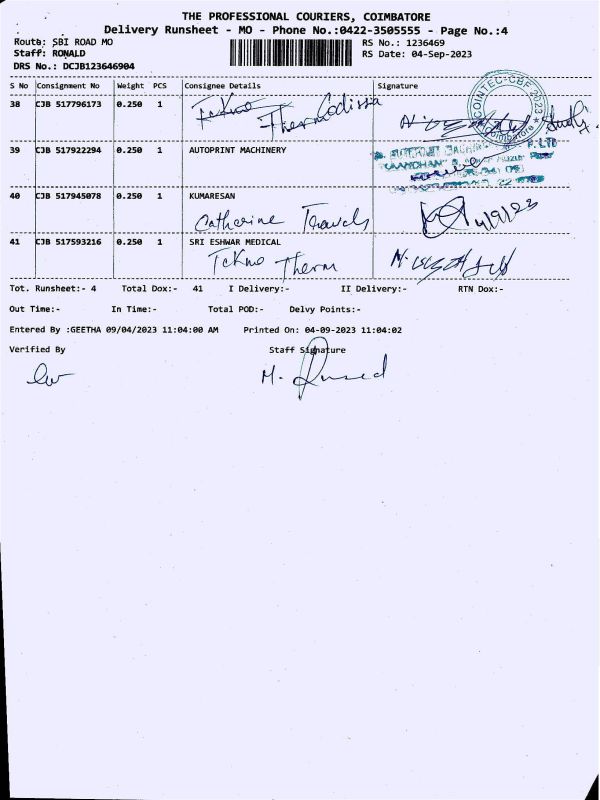 THE PROFESSIONAL COURIERS, COIMBATORE
Delivery Runsheet - MO - Phone No.:0422-3505555 - Page No.:4
Route: SBI ROAD MO RS No.: 1236469
Staff: RONALD RS Date: 04-Sep-2023
DRS No.: DCJB123646904
S No Consignment No Weight PCS Consignee Details Signature
38 CJB 517796173 0.250 1 Tekno Therm Codissa
COINTEC-CBF 2023
Coimbatore
39 CJB 517922294 0.250 1 AUTOPRINT MACHINERY
P.LTD
40 CJB 517945078 0.250 1 KUMARESAN
Catherine Travels 4/9/23
41 CJB 517593216 0.250 1 SRI ESHWAR MEDICAL
Tekno Therm
Tot. Runsheet:- 4 Total Dox:- 41 I Delivery:- II Delivery:- RTN Dox:-
Out Time:- In Time:- Total POD:- Delvy Points:-
Entered By :GEETHA 09/04/2023 11:04:00 AM Printed On: 04-09-2023 11:04:02
Verified By Staff Signature